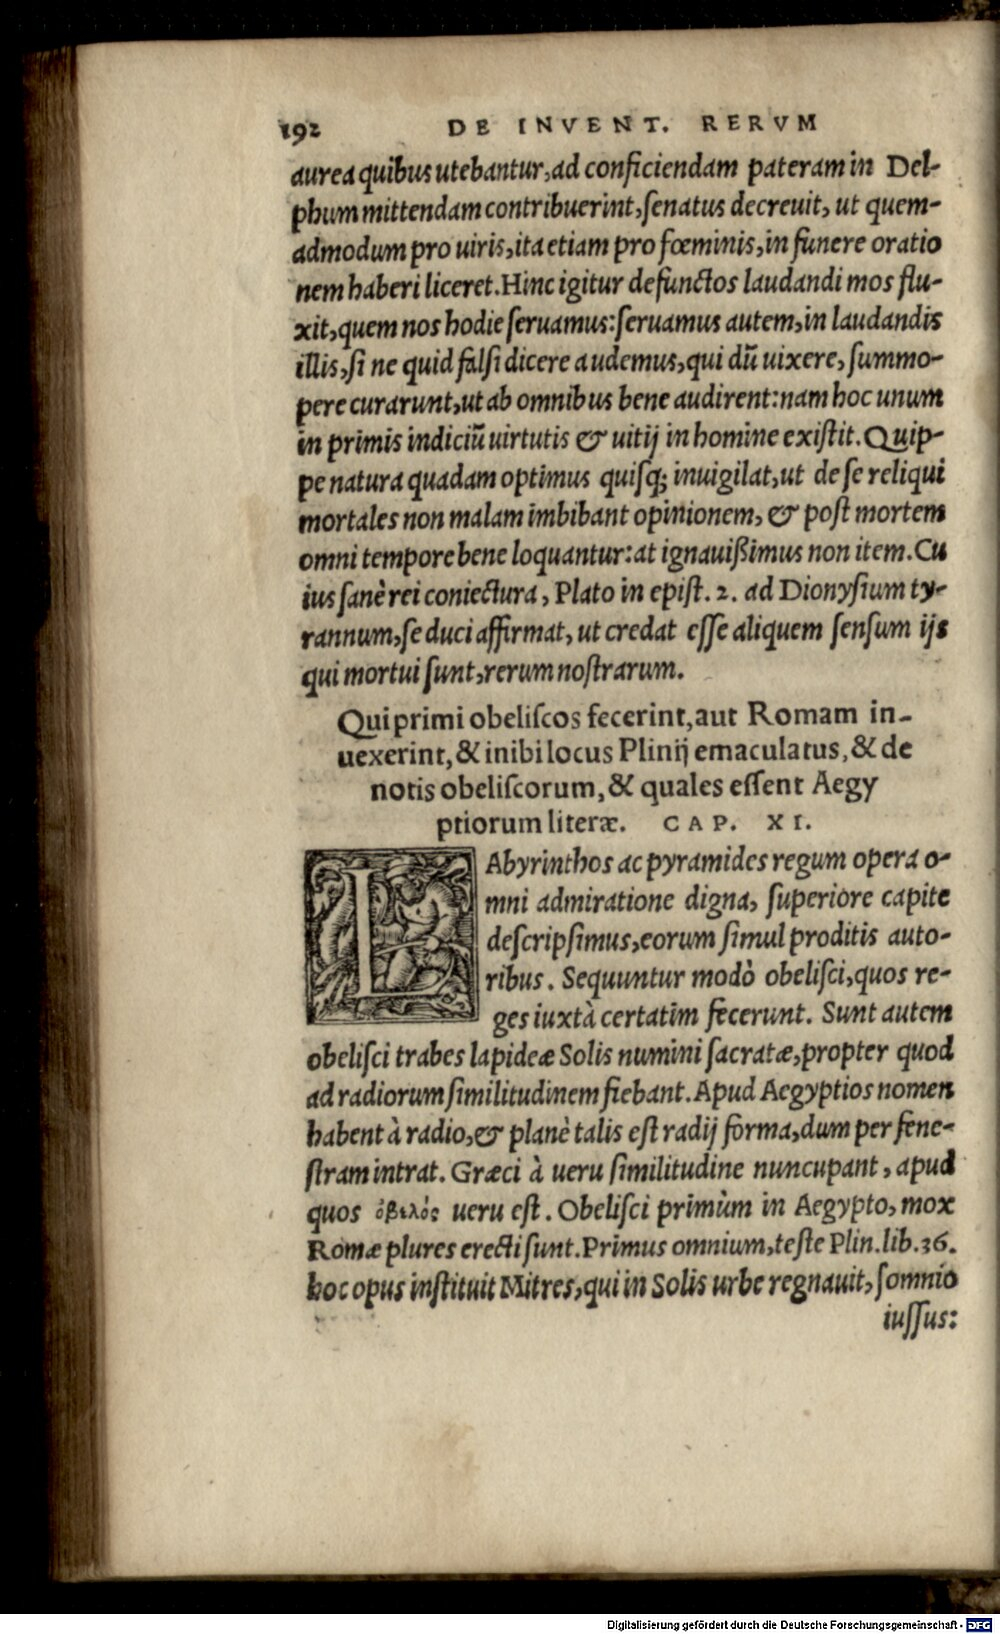 192 DE INVENT. RERVM
aurea quibus utebantur, ad conficiendam pateram in Del-
phum mittendam contribuerint, ſenatus decreuit, ut quem-
admodum pro uiris, ita etiam pro fœminis, in funere oratio
nem haberi liceret. Hinc igitur defunctos laudandi mos flu-
xit, quem nos hodie ſeruamus: ſeruamus autem, in laudandis
illis, ſi ne quid falſi dicere audemus, qui dũ uixere, ſummo-
pere curarunt, ut ab omnibus bene audirent: nam hoc unum
in primis indiciũ uirtutis & uitij in homine exiſtit. Quip-
pe natura quadam optimus quiſq; inuigilat, ut de ſe reliqui
mortales non malam imbibant opinionem, & poſt mortem
omni tempore bene loquantur: at ignauißimus non item. Cu
ius ſanè rei coniectura, Plato in epiſt. 2. ad Dionyſium ty-
rannum, ſe duci affirmat, ut credat eſſe aliquem ſenſum ijs
qui mortui ſunt, rerum noſtrarum.
Qui primi obeliſcos fecerint, aut Romam in-
uexerint, & inibi locus Plinij emaculatus, & de
notis obeliſcorum, & quales eſſent Aegy
ptiorum literæ. CAP. XI.
LAbyrinthos ac pyramides regum opera o-
mni admiratione digna, ſuperiore capite
deſcripſimus, eorum ſimul proditis auto-
ribus. Sequuntur modò obeliſci, quos re-
ges iuxtà certatim fecerunt. Sunt autem
obeliſci trabes lapideæ Solis numini ſacratæ, propter quod
ad radiorum ſimilitudinem fiebant. Apud Aegyptios nomen
habent à radio, & planè talis eſt radij forma, dum per fene-
ſtram intrat. Græci à ueru ſimilitudine nuncupant, apud
quos ὀβελὸς ueru eſt. Obeliſci primùm in Aegypto, mox
Romæ plures erecti ſunt. Primus omnium, teſte Plin. lib. 36.
hoc opus inſtituit Mitres, qui in Solis urbe regnauit, ſomnio
iuſſus:
Digitalisierung gefördert durch die Deutsche Forschungsgemeinschaft - DFG